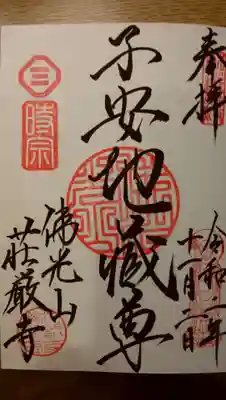 奉拝
令和二年
十一月二日
子安地蔵尊
時宗
佛光山
荘厳寺